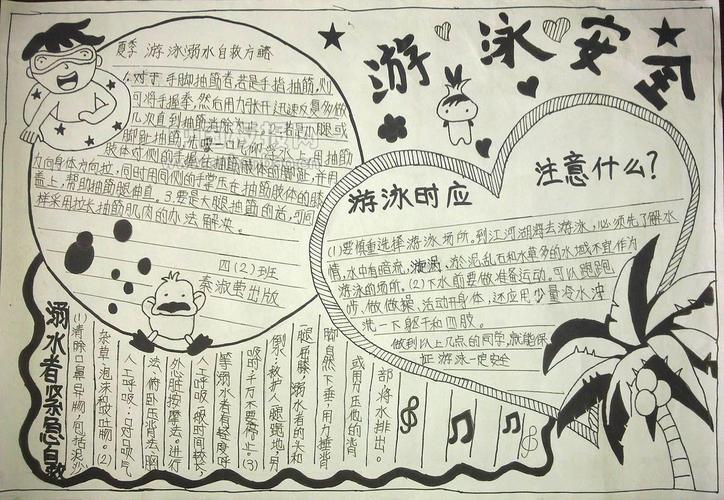 游泳安全
夏季 游泳溺水自救方
1.对于手脚抽筋者,若是手指抽筋,则
可将手握拳,然后用力张开,迅速反复多做
几次直到抽筋消除为止。2.若是小腿或
脚趾抽筋,先吸一口气仰浮水上,用抽筋
肢体对侧的手握住抽筋肢体的脚趾,并用
力向身体方向拉,同时用同侧的手掌压在抽筋肢体的膝
盖上,帮助抽筋腿伸直。3.要是大腿抽筋的话,可同
样采用拉长抽筋肌肉的办法解决。
四(2)班
秦淑莹出版
游泳时应
注意什么?
(1)要慎重选择游泳场所。到江河湖海去游泳,必须先了解水
情,水中有暗流,漩涡,淤泥,乱石和水草多的水域不宜作为
游泳的场所。(2)下水前要做准备运动。可以跑跑
步,做做操,活动开身体,还应用少量冷水冲
洗一下躯干和四肢。
做到以上几点的同学,就能保
证游泳一定安全
溺水者紧急自救
(1)清除口鼻异物,包括泥沙
杂草,泡沫和呕吐物。(2)
人工呼吸:口对口吹气
法,俯卧压背法,胸
外心脏按摩法。进行
人工呼吸,一般时间较长,
等溺水者有轻度呼
吸时千万不要停止。(3)
倒水:救护人腿跪地,另
腿屈膝,溺水者的头和
脚自然下垂,用力捶背
或用力压他的背
部将水排出。